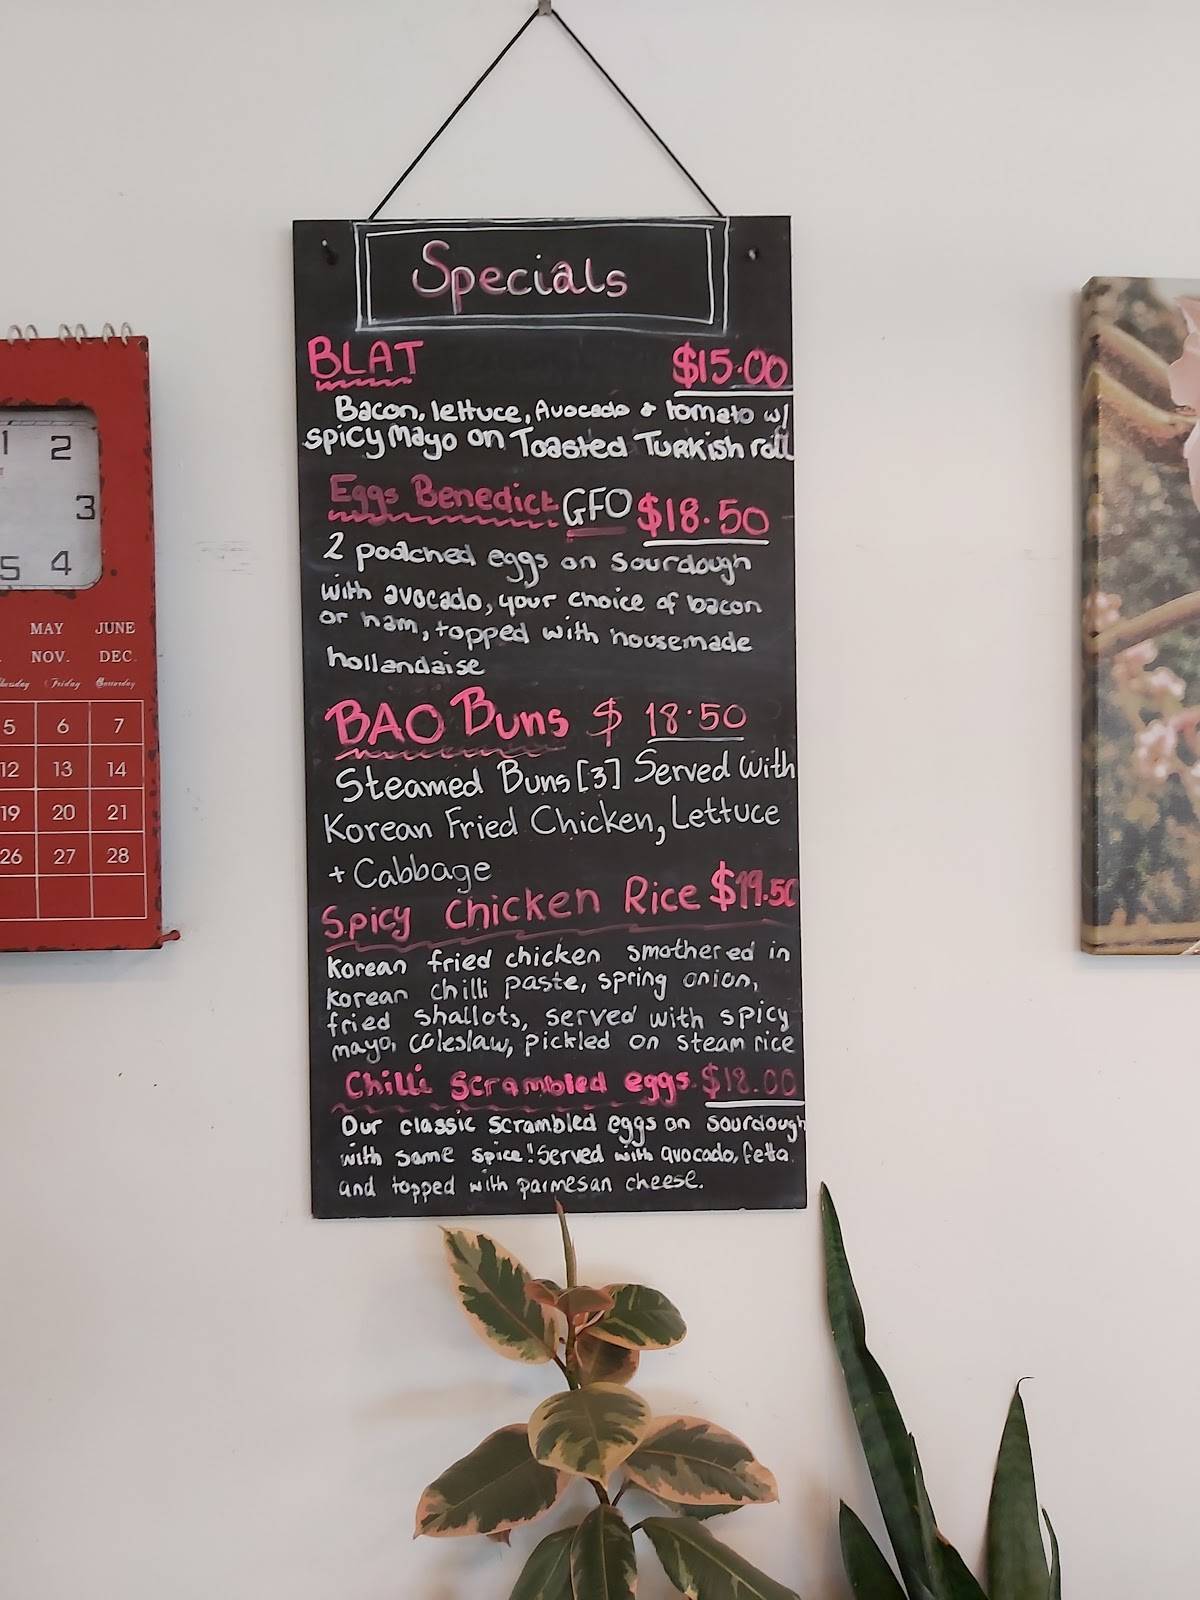 Specials
BLAT $15.00
Bacon, lettuce, Avocado & tomato w/
spicy Mayo on Toasted Turkish roll
Eggs Benedict GFO $18.50
2 poached eggs on sourdough
with avocado, your choice of bacon
or ham, topped with housemade
hollandaise
BAO Buns $18.50
Steamed Buns [3] Served With
Korean Fried Chicken, Lettuce
+ Cabbage
Spicy Chicken Rice $19.50
Korean fried chicken smothered in
korean chilli paste, spring onion,
fried shallots, served with spicy
mayo, coleslaw, pickled on steam rice
Chilli Scrambled eggs $18.00
Our classic scrambled eggs on sourdough
with some spice! Served with avocado, fetta
and topped with parmesan cheese.
1 2
3
5 4
MAY JUNE
NOV. DEC.
Friday Saturday
5 6 7
12 13 14
19 20 21
26 27 28